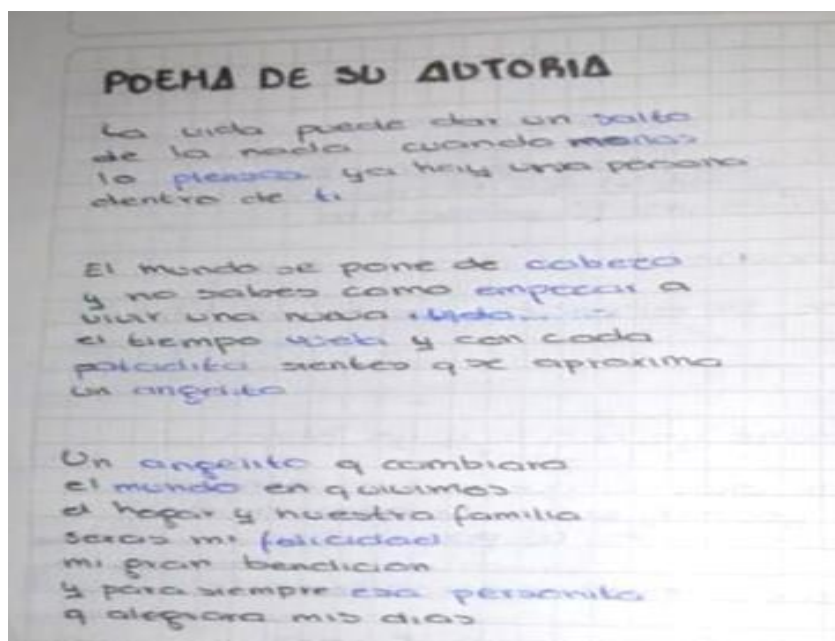 POEMA DE SU AUTORIA
La vida puede dar un salto
de la nada cuando menos
lo piensas ya hay una persona
dentro de ti
El mundo se pone de cabeza
y no sabes como empezar a
vivir una nueva vida
el tiempo vuela y con cada
patadita sientes q se aproxima
un angelito
Un angelito q cambiara
el mundo en q vivimos
el hogar y nuestra familia
seras mi felicidad
mi gran bendicion
y para siempre esa personita
q alegrara mis dias